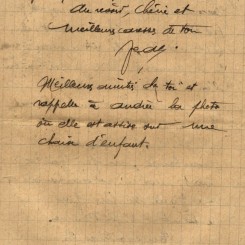 Au revoir, chérie et
meilleures caresses de ton
Meilleures amitiés chez toi et
rappelle à andrée la photo
où elle est assise sur une
chaise d'enfant.